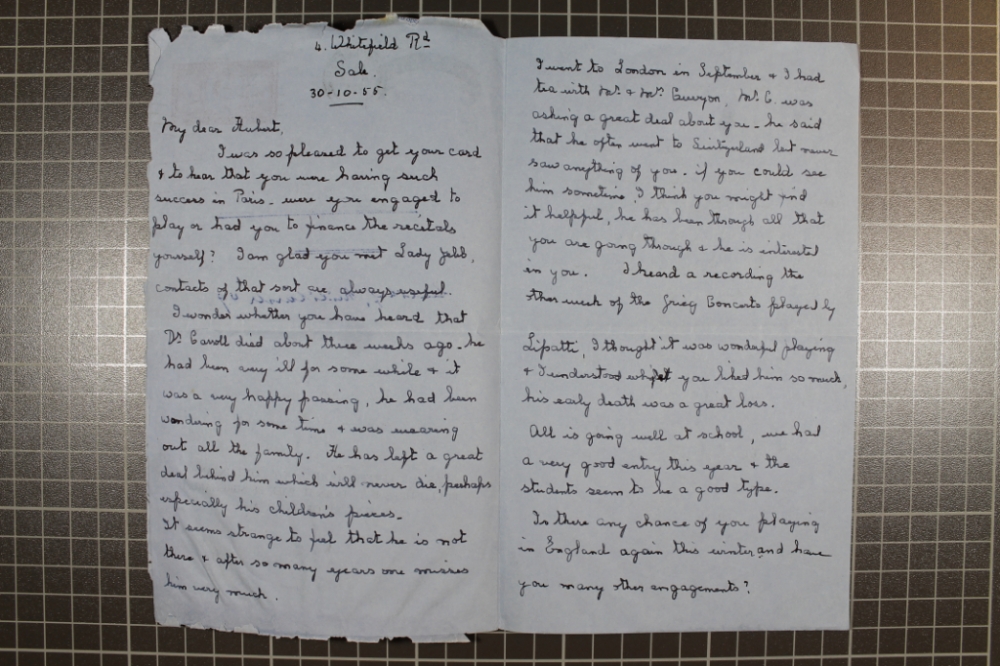 4. Whitefield Rd
Sale.
30-10-55.
My dear Hubert,
I was so pleased to get your card
& to hear that you were having such
success in Paris. were you engaged to
play or had you to finance the recitals
yourself? I am glad you met Lady Jebb,
contacts of that sort are always useful.
I wonder whether you have heard that
Dr Carroll died about three weeks ago. he
had been very ill for some while & it
was a very happy passing, he had been
wondering for some time & was wearing
out all the family. He has left a great
deal behind him which will never die, perhaps
especially his children's pieces.
It seems strange to feel that he is not
there & after so many years one misses
him very much.
I went to London in September & I had
tea with Mr & Mrs
Mr. C. was
asking a great deal about you - he said
that he often went to Switzerland but never
saw anything of you. if you could see
him sometime, I think you might find
it helpful, he has been through all that
you are going through & he is interested
in you. I heard a recording the
other week of the Grieg Concerto played by
Lipatti, I thought it was wonderful playing
& I understood why you liked him so much,
his early death was a great loss.
All is going well at school, we had
a very good entry this year & the
students seem to be a good type.
Is there any chance of you playing
in England again this winter and have
you many other engagements?